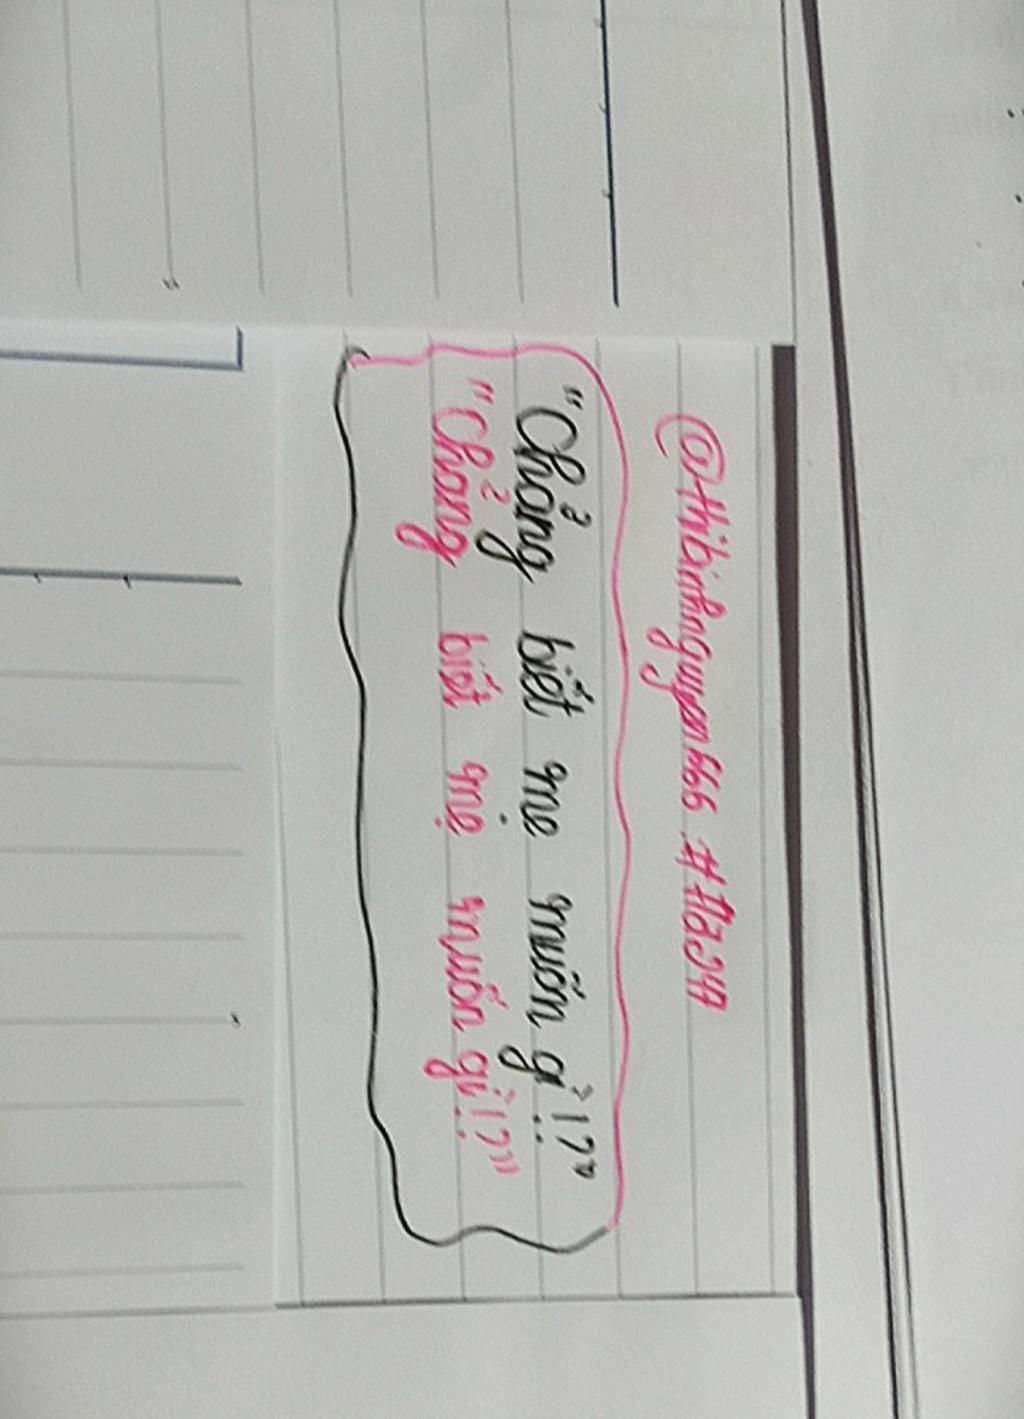 @thibinhnguyen666 #Ha2k7
"Chẳng biết mẹ muốn gì!?"
"Chẳng biết mẹ muốn gì!?"